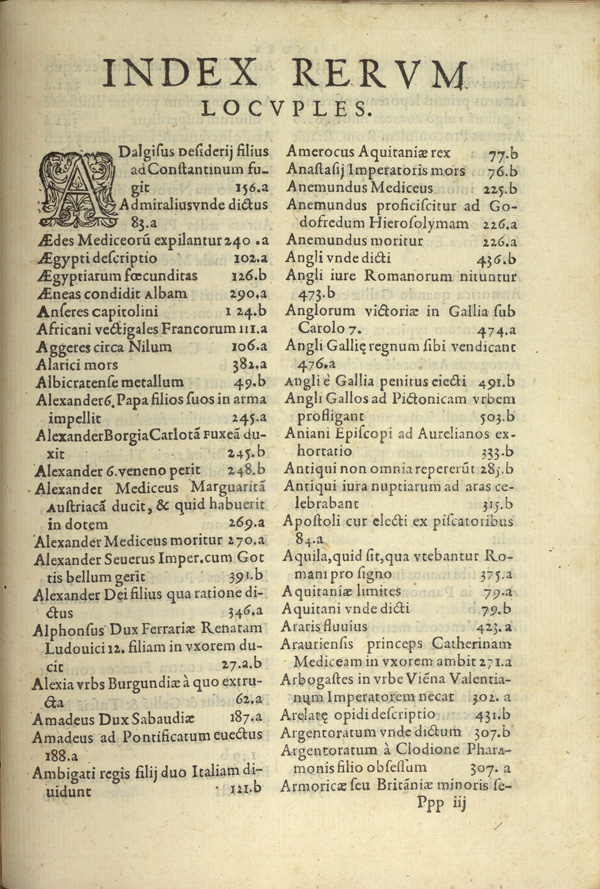 INDEX RERVM
LOCVPLES.
ADalgisus Desiderij filius
ad Constantinum fu-
git 156.a
Admiralius vnde dictus
83.a
Ædes Mediceorũ expilantur 240.a
Ægypti descriptio 102.a
Ægyptiarum fœcunditas 126.b
Æneas condidit Albam 290.a
Anseres capitolini 124.b
Africani vectigales Francorum 111.a
Aggeres circa Nilum 106.a
Alarici mors 382.a
Albicratense metallum 49.b
Alexander 6. Papa filios suos in arma
impellit 245.a
Alexander Borgia Carlotã Fuxeã du-
xit 245.b
Alexander 6. veneno perit 248.b
Alexander Mediceus Marguaritã
Austriacã ducit, & quid habuerit
in dotem 269.a
Alexander Mediceus moritur 270.a
Alexander Seuerus Imper. cum Got
tis bellum gerit 391.b
Alexander Dei filius qua ratione di-
ctus 346.a
Alphonsus Dux Ferrariæ Renatam
Ludouici 12. filiam in vxorem du-
cit 27.2.b
Alexia vrbs Burgundiæ à quo extru-
cta 62.a
Amadeus Dux Sabaudiæ 187.a
Amadeus ad Pontificatum euectus
188.a
Ambigati regis filij duo Italiam di-
uidunt 121.b
Amerocus Aquitaniæ rex 77.b
Anastasij Imperatoris mors 76.b
Anemundus Mediceus 225.b
Anemundus proficiscitur ad Go-
dofredum Hierosolymam 226.a
Anemundus moritur 226.a
Angli vnde dicti 436.b
Angli iure Romanorum nituntur
473.b
Anglorum victoriæ in Gallia sub
Carolo 7. 474.a
Angli Gallię regnum sibi vendicant
476.a
Angli è Gallia penitus eiecti 491.b
Angli Gallos ad Pictonicam vrbem
profligant 503.b
Aniani Episcopi ad Aurelianos ex-
hortatio 333.b
Antiqui non omnia repererũt 285.b
Antiqui iura nuptiarum ad aras ce-
lebrabant 315.b
Apostoli cur electi ex piscatoribus
84.a
Aquila, quid sit, qua vtebantur Ro-
mani pro signo 375.a
Aquitaniæ limites 79.a
Aquitani vnde dicti 79.b
Araris fluuius 423.a
Arausiensis princeps Catherinam
Mediceam in vxorem ambit 271.a
Arbogastes in vrbe Viẽna Valentia-
num Imperatorem necat 302.a
Arelatę opidi descriptio 431.b
Argentoratum vnde dictum 307.b
Argentoratum à Clodione Phara-
monis filio obsessum 307.a
Armoricæ seu Britãniæ minoris se-
Ppp iij